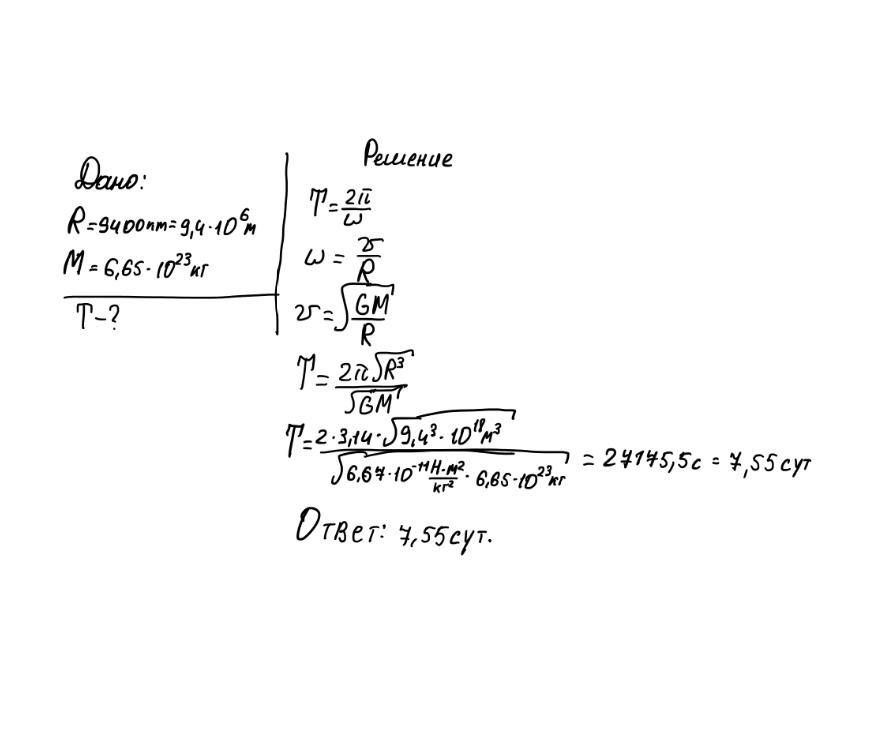 Дано:
R=9400км=9,4·10⁶м
M=6,65·10²³кг
T-?
Решение
T=2π/ω
ω=v/R
v=√(GM/R)
T=2π√R³/√GM
T=2·3,14·√9,4³·10¹⁸м³/√6,67·10⁻¹¹Н·м²/кг²·6,65·10²³кг = 27175,5с = 7,55сут
Ответ: 7,55сут.